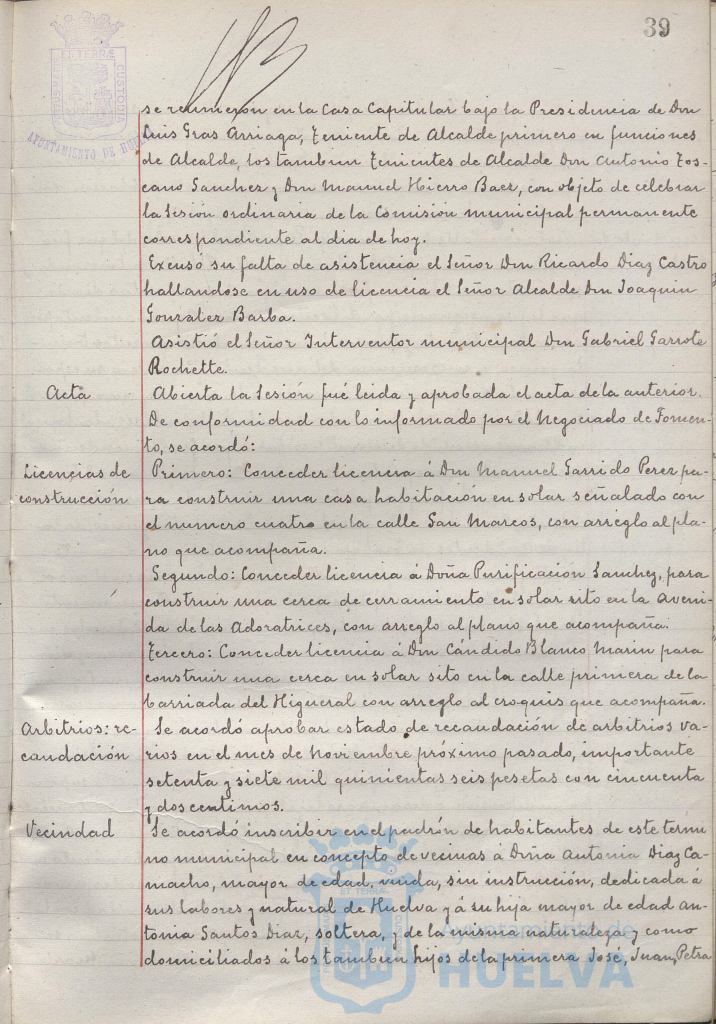 39
PORTUS MARIS
ET TERRÆ
CUSTODIA
AYUNTAMIENTO DE HUELVA
se reunieron en la Casa Capitular bajo la Presidencia de Don
Luis Gras Arriaga, Teniente de Alcalde primero en funciones
de Alcalde, los tambien Tenientes de Alcalde Don Antonio Tos-
cano Sanchez y Don Manuel Hierro Baez, con objeto de celebrar
la Sesión ordinaria de la Comisión municipal permanente
correspondiente al dia de hoy.
Excusó su falta de asistencia el Señor Don Ricardo Diaz Castro
hallandose en uso de licencia el Señor Alcalde Don Joaquin
Gonzalez Barba.
Asistió el Señor Interventor municipal Don Gabriel Garrote
Rochette.
Acta
Abierta la Sesión fué leida y aprobada el acta de la anterior.
De conformidad con lo informado por el Negociado de Fomen-
to, se acordó:
Licencias de
construcción
Primero: Conceder licencia á Don Manuel Garrido Perez pa-
ra construir una casa habitación en solar señalado con
el numero cuatro en la calle San Marcos, con arreglo al pla-
no que acompaña.
Segundo: Conceder licencia á Doña Purificación Sanchez, para
construir una cerca de cerramiento en solar sito en la Aveni-
da de las Adoratrices, con arreglo al plano que acompaña.
Tercero: Conceder licencia á Don Cándido Blanco Marin para
construir una cerca en solar sito en la calle primera de la
barriada del Higueral con arreglo al croquis que acompaña.
Arbitrios: re-
caudación
Se acordó aprobar estado de recaudación de arbitrios va-
rios en el mes de Noviembre próximo pasado, importante
setenta y siete mil quinientas seis pesetas con cincuenta
y dos centimos.
Vecindad
Se acordó inscribir en el padrón de habitantes de este termi
no municipal en concepto de vecinas á Doña Antonia Diaz Ca-
macho, mayor de edad, viuda, sin instrucción, dedicada á
sus labores y natural de Huelva y á su hija mayor de edad An-
tonia Santos Diaz, soltera, y de la misma naturaleza y como
domiciliados á los tambien hijos de la primera José, Juan, Petra
Ayuntamiento de
HUELVA